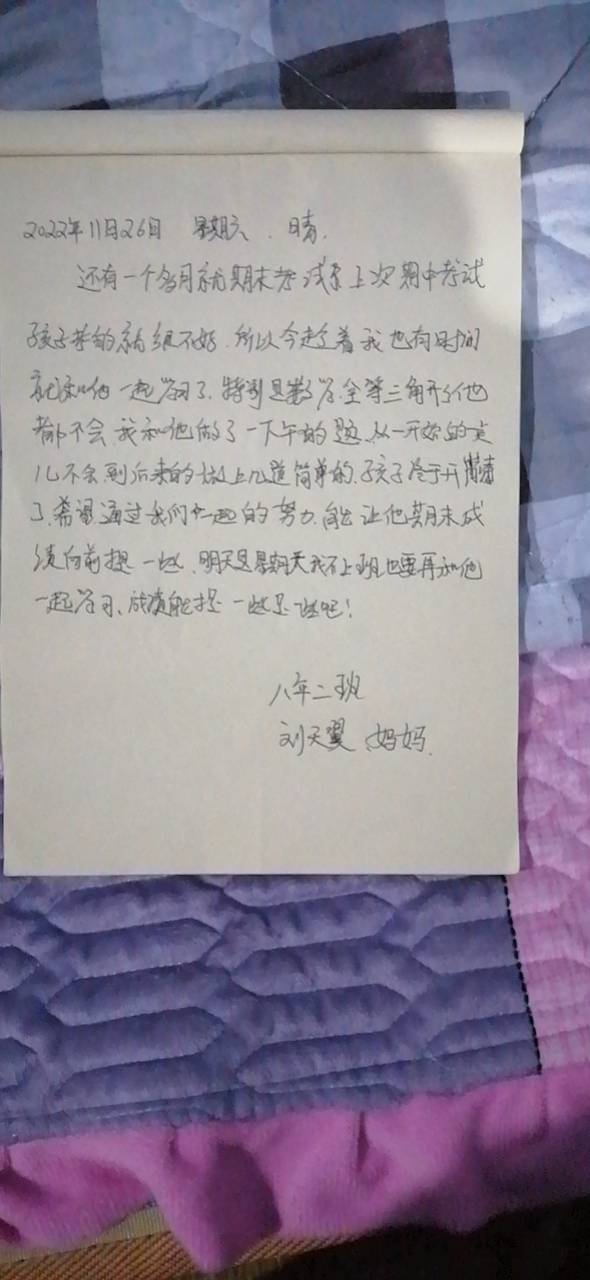 2022年11月26日 星期六. 晴.
还有一个多月就期末考试了上次期中考试
孩子考的就很不好.所以今趁着我也有时间
就和他一起学习了.特别是数学全等三角形他
都不会我和他做了一下午的题.从一开始的一点
儿不会到后来的做上几道简单的.孩子终于开
了.希望通过我们一起的努力.能让他期末成
绩向前提一些.明天是星期天我不上班也要再和他
一起学习.成绩能提一些是一些吧!
八年二班
刘天翼 妈妈.